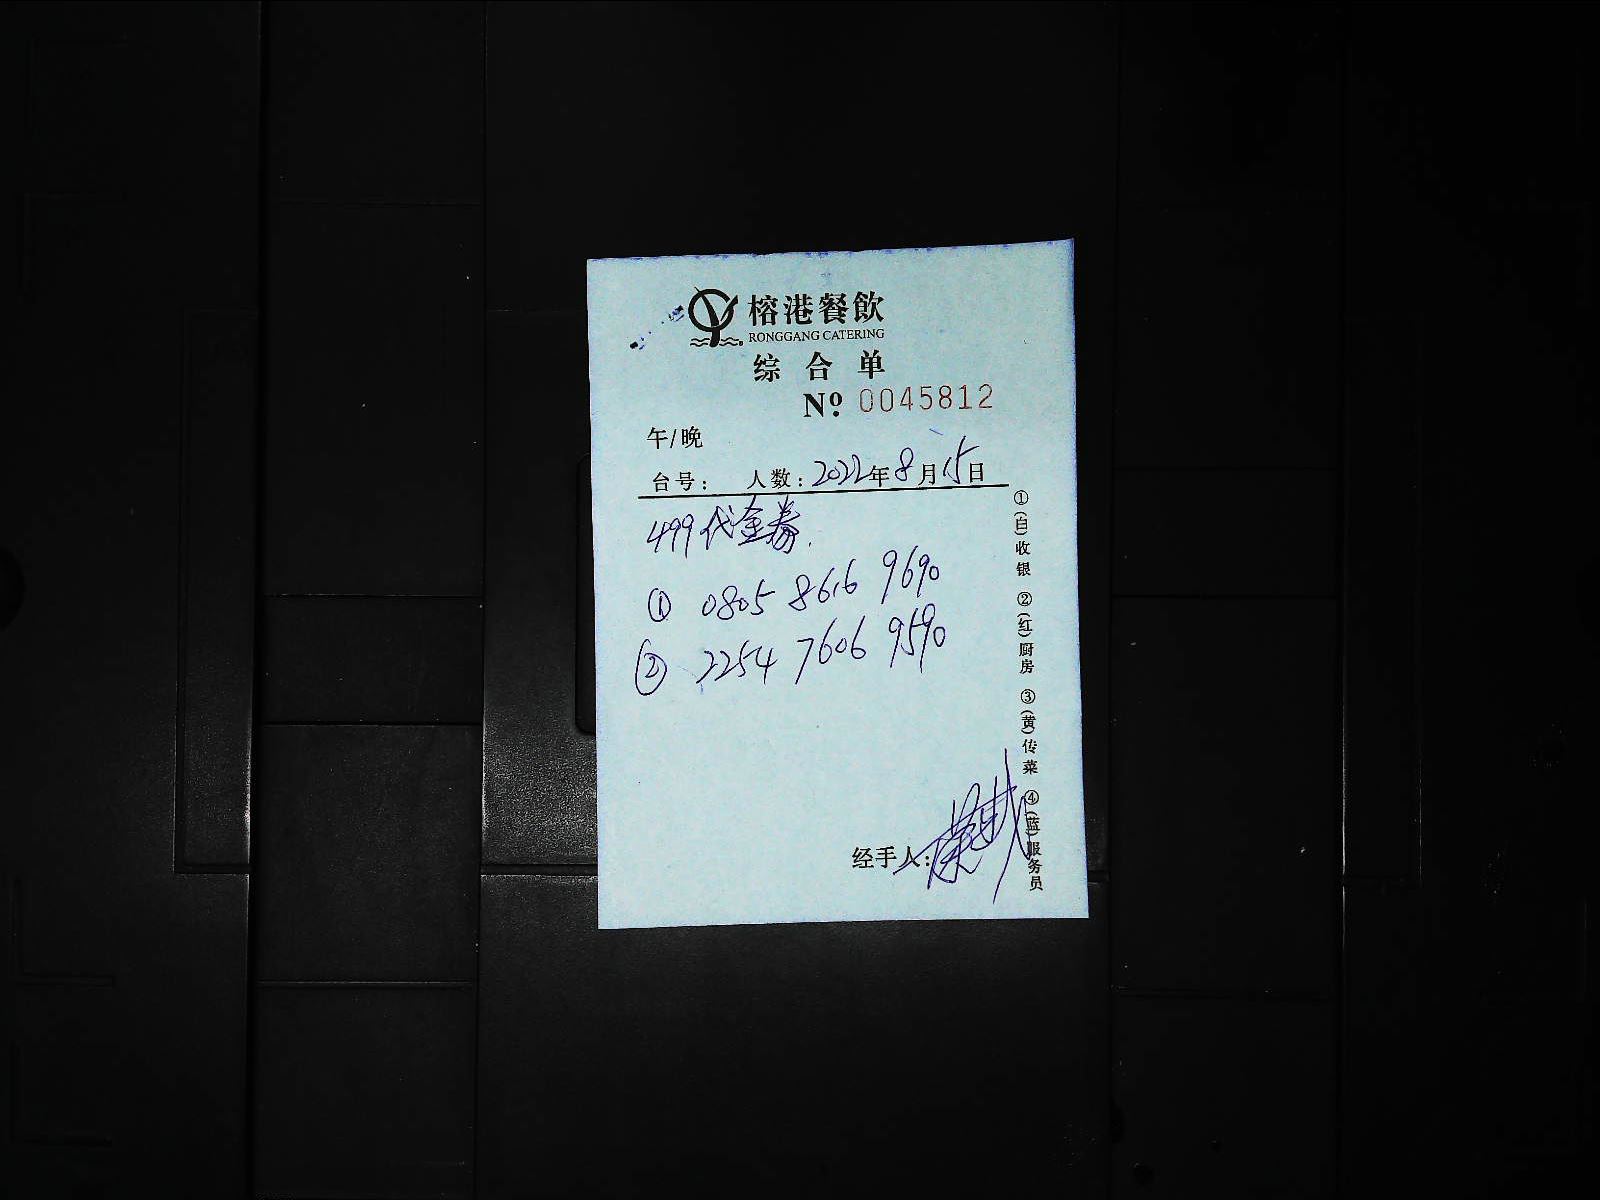 榕港餐飲
RONGGANG CATERING
综合单
No. 0045812
午/晚
台号: 人数: 2022年8月15日
499代金券.
① 0805 8616 9690
② 2254 7606 9590
经手人:
①(白)收银 ②(红)厨房 ③(黄)传菜 ④(蓝)服务员